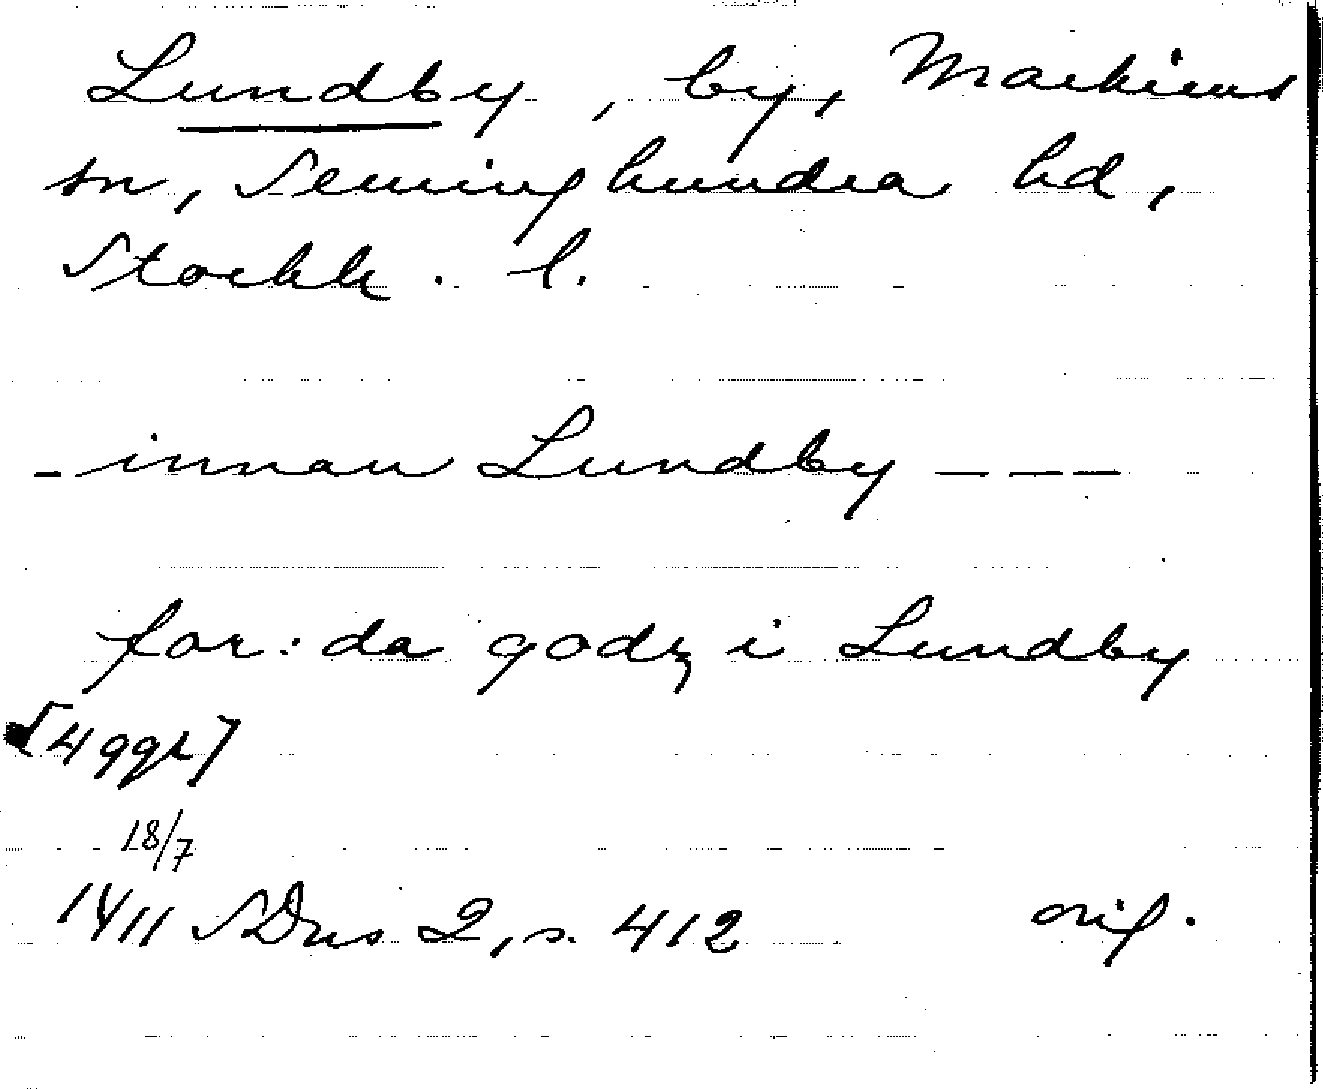 Lundby, by, Markims
sn, Seminghundra hd,
Stockh. l.
- innan Lundby - - -
for: da godz i Lundby
[4 ggr]
18/7
1411 SDns 2, s. 412 orig.